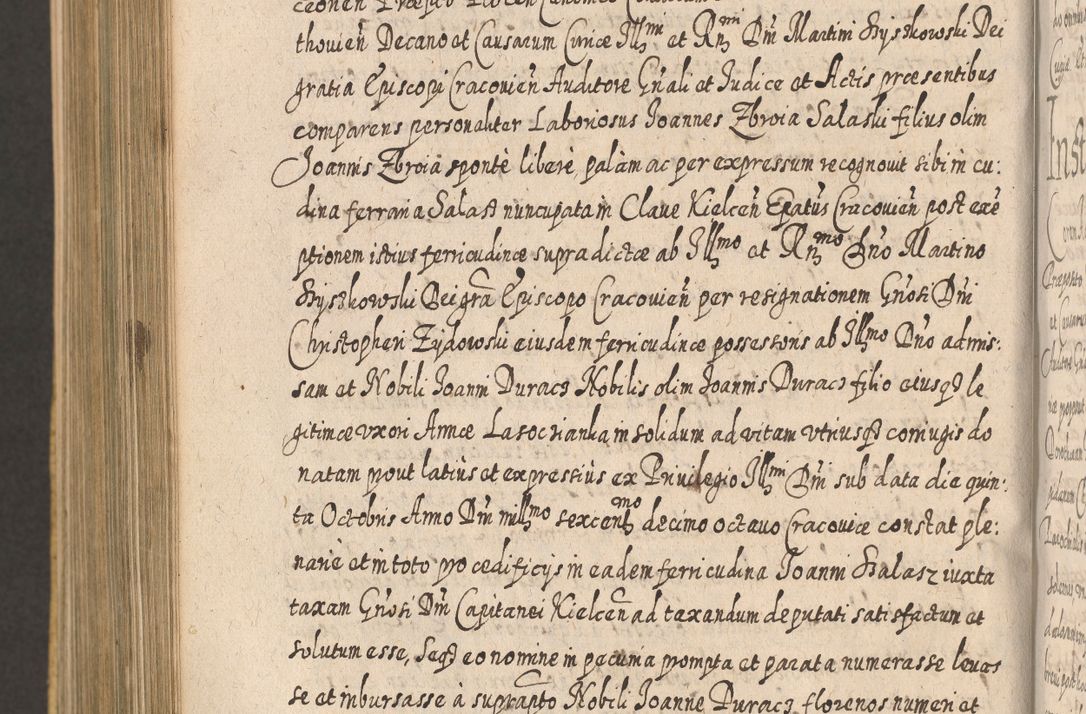 thouień Decano et Causarum Curiæ Illmi et Rmi Dni Martini Szyszkowski Dei
gratia Episcopi Cracouień Auditore Gńali et Judice et Actis præsentibus
comparens personaliter Laboriosus Joannes Zbroia Salaski filius olim
Joannis Zbroia spontè liberè palàm ac per expressum recognouit sibi in cu:
dina ferraria Salasz nuncupata in Claue Kielceń Epatûs Cracouień post exē
ptionem istius ferricudinæ supradictæ ab Illmo et Rmo Dńo Martino
Szyszkowski Dei gra Episcopo Cracouień per resignationem Gńosi Dńi
Christopheri Zydowski eiusdem ferricudinæ possessoris ab Illmo Dńo admis:
sam et Nobili Joanni Duracz Nobilis olim Joannis Duracz filio eiusq3 le
gitimæ vxori Annæ Lasoczianka in solidum ad vitam vtriusq3 coniugis do
natam prout latiùs et expressiùs ex Priuilegio Illmi Dńi sub data die quin:
ta Octobris Anno Dńi millmo sexcentmo decimo octauo Cracouiæ constat ple:
nariè et in toto pro ædificijs in eadem ferricudina Joanni Salasz iuxta
taxam Gńosi Dńi Capitanei Kielceń ad taxandum deputati satisfactum et
solutum esse, Seq3 eo nomine in pecunia prompta et parata numerasse leuas
se et inbursasse à supraṕto Nobili Joanne Duracz florenos numeri et